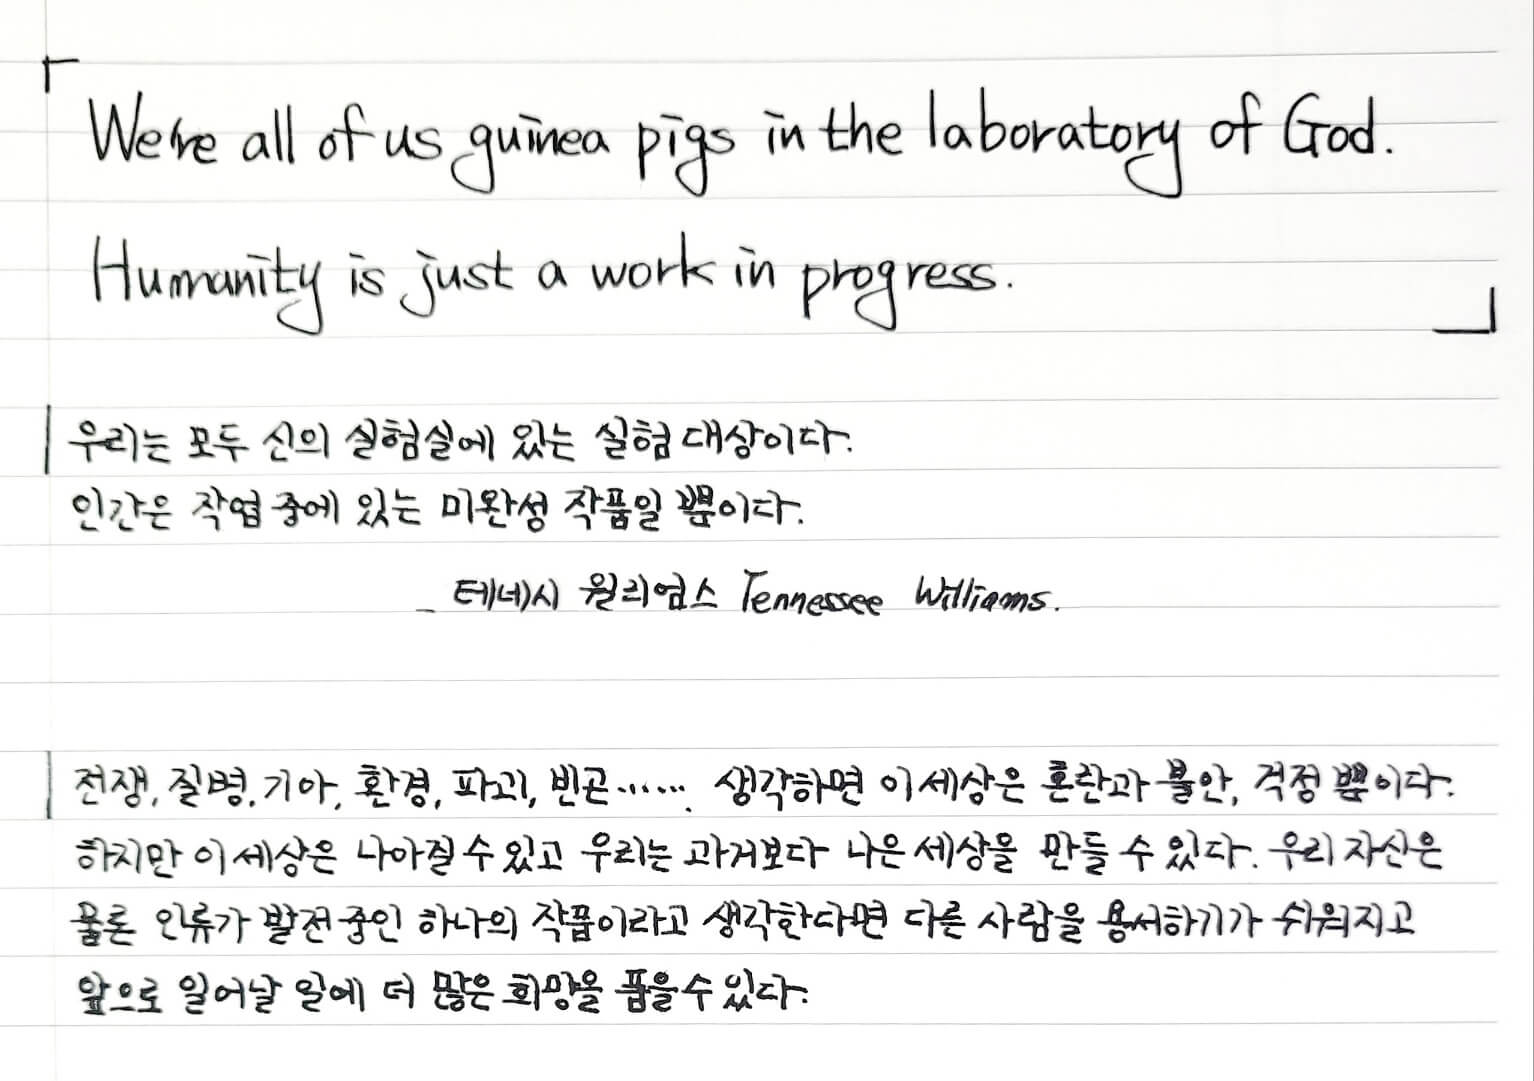 「We're all of us guinea pigs in the laboratory of God.
Humanity is just a work in progress.」
우리는 모두 신의 실험실에 있는 실험 대상이다.
인간은 작업 중에 있는 미완성 작품일 뿐이다.
_ 테네시 윌리엄스 Tennessee Williams.
전쟁, 질병, 기아, 환경, 파괴, 빈곤....... 생각하면 이 세상은 혼란과 불안, 걱정 뿐이다.
하지만 이 세상은 나아질 수 있고 우리는 과거보다 나은 세상을 만들 수 있다. 우리 자신은
물론 인류가 발전 중인 하나의 작품이라고 생각한다면 다른 사람을 용서하기가 쉬워지고
앞으로 일어날 일에 더 많은 희망을 품을 수 있다.